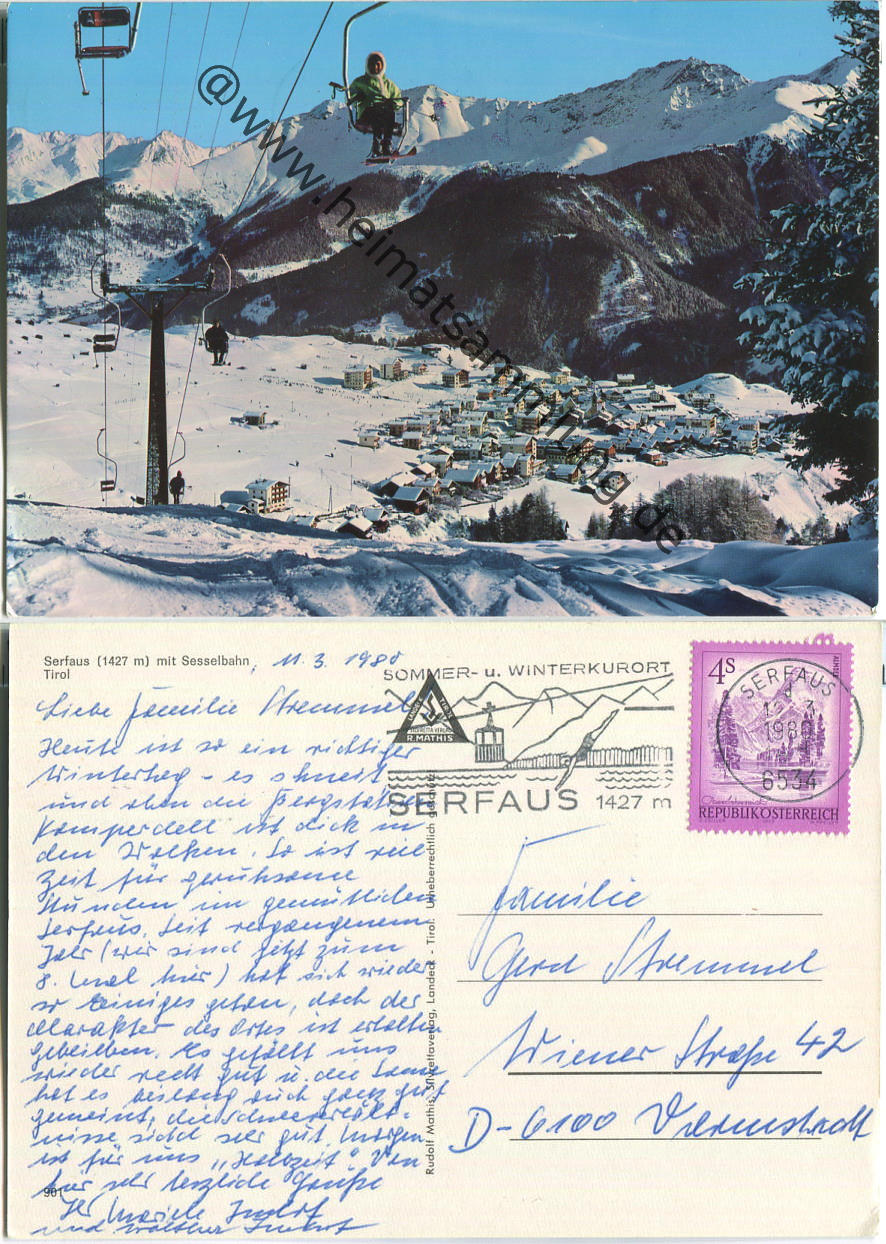 @www.heimatsammlung.de
Serfaus (1427 m) mit Sesselbahn
Tirol
11.3.1980
Liebe Familie Stremmel
Heute ist so ein richtiger
Wintertag - es schneit
und oben die Bergstation
Komperdell ist dick in
den Wolken. So ist viel
Zeit für geruhsame
Stunden im gemütlichen
Serfaus. Seit vergangenem
Jahr (wir sind jetzt zum
8. Mal hier) hat sich wieder
so einiges getan, doch der
Charakter des Ortes ist erhalten
geblieben. Es gefällt uns
wieder recht gut u. die Sonne
hat es bislang auch ganz gut
gemeint, die Schneeverhält-
nisse sind sehr gut. Morgen
ist für uns „Halbzeit". Von
hier sehr herzliche Grüße
Ihr
und Walther
901
SOMMER- u. WINTERKURORT
SILVRETTA VERLAG
R.MATHIS
SERFAUS 1427 m
Rudolf Mathis, Silvrettaverlag, Landeck - Tirol. Urheberrechtlich geschützt
4S
REPUBLIK ÖSTERREICH
SERFAUS
1980
6534
Familie
Gerd Stremmel
Wiener Straße 42
D-6100 Darmstadt